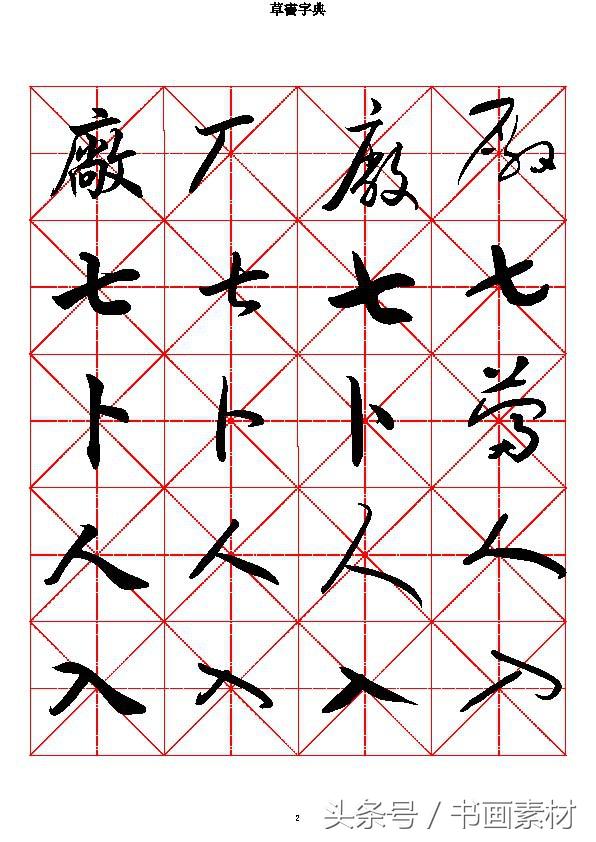 草書字典
廠 厂 廠 廠
七 七 七 七
卜 卜 卜 蔔
人 人 人 人
入 入 入 入
2
头条号 / 书画素材